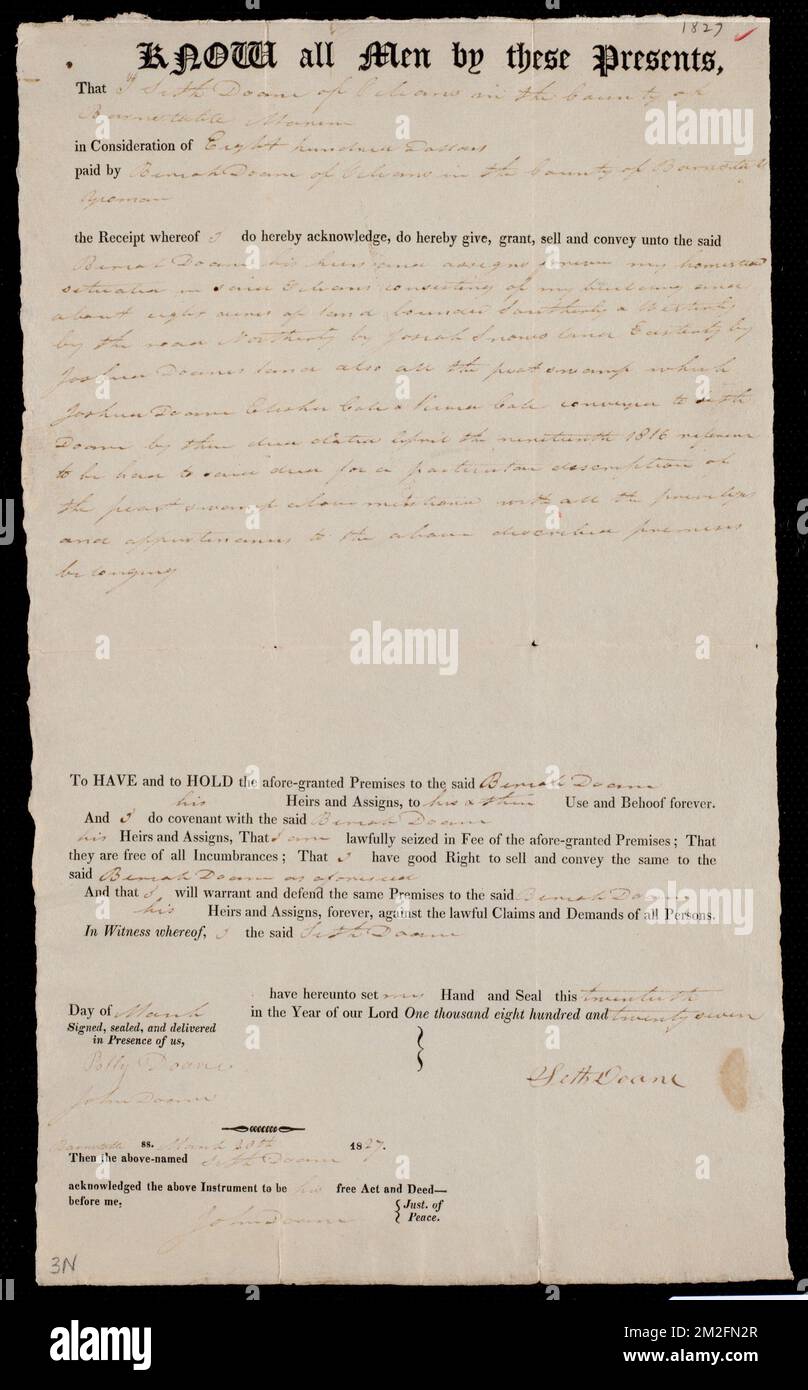 1827
KNOW all Men by these Presents,
That I Seth Doane of Orleans in the County of
Barnstable Mariner
in Consideration of Eight hundred Dollars
paid by Beriah Doane of Orleans in the County of Barnstable
Yeoman
the Receipt whereof I do hereby acknowledge, do hereby give, grant, sell and convey unto the said
Beriah Doane his heirs and assigns forever my homestead
situated in said Orleans consisting of my building and
about eight acres of land bounded Southerly & Westerly
by the road Northerly by Josiah Snows land Easterly by
Joshua Doanes land also all the peat swamp which
Joshua Doane Elisher Cole & Cole conveyed to Seth
Doane by their deed dated April the nineteenth 1816 reference
to be had to said deed for a particular description of
the peat swamp above mentioned with all the privileges
and appurtenances to the above described premises
belonging
To HAVE and to HOLD the afore-granted Premises to the said Beriah Doane
his Heirs and Assigns, to his & their Use and Behoof forever.
And I do covenant with the said Beriah Doane
his Heirs and Assigns, That I am lawfully seized in Fee of the afore-granted Premises; That
they are free of all Incumbrances; That I have good Right to sell and convey the same to the
said Beriah Doane as aforesaid
And that I will warrant and defend the same Premises to the said Beriah Doane
his Heirs and Assigns, forever, against the lawful Claims and Demands of all Persons.
In Witness whereof, I the said Seth Doane
have hereunto set my Hand and Seal this twentieth
Day of March in the Year of our Lord One thousand eight hundred and twenty seven
Signed, sealed, and delivered
in Presence of us,
Polly Doane
Seth Doane
John Doane
Barnstable ss. March 20th 1827.
Then the above-named Seth Doane
acknowledged the above Instrument to be his free Act and Deed—
before me,
John Doane Just. of
Peace.
3N
alamy
Image ID: 2M2FN2R
www.alamy.com